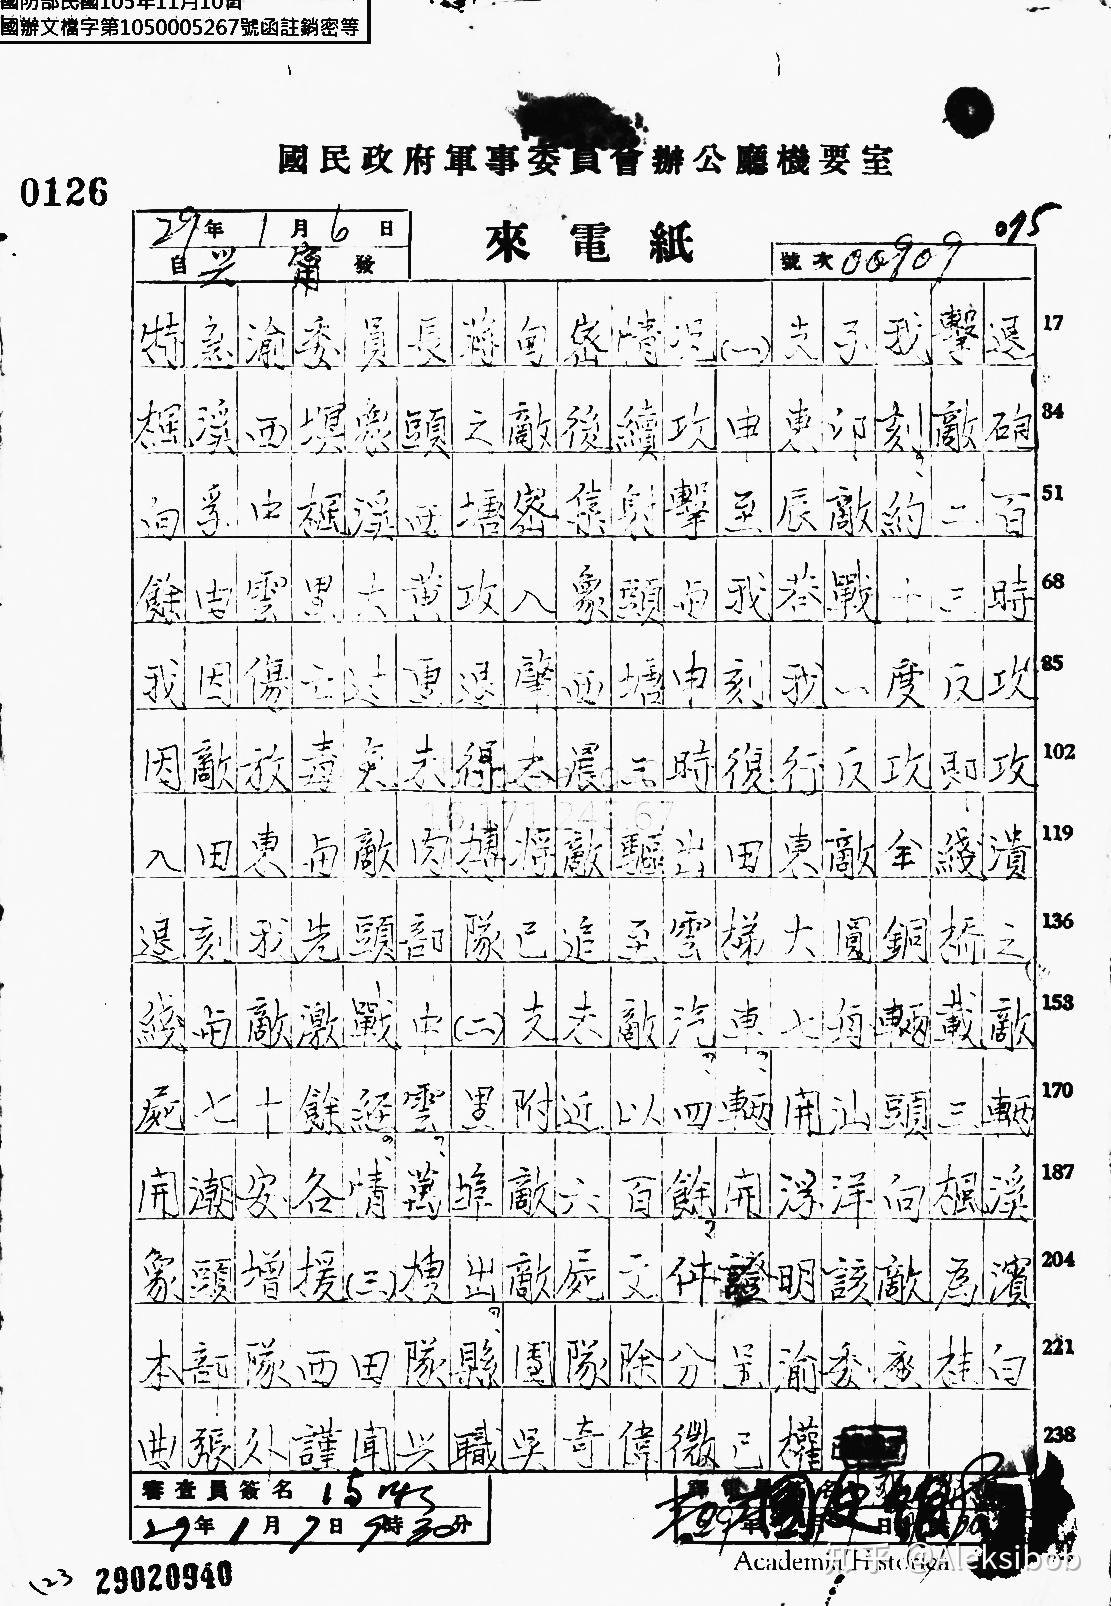 國防部民國105年11月10函
國辦文檔字第1050005267號函註銷密等
國民政府軍事委員會辦公廳機要室
0126
29年1月6日
來電紙
075
自兴甯發
號次00909
特急渝委員長蔣甸密情況(一)支子我擊退 17
楓溪西塘象頭之敵後續攻申東卯刻敵砲 34
向孚中楓溪西塘密集射擊至辰敵約二百 51
餘由雲里大黄攻入象頭与我巷戰十三時 68
我因傷亡过重退肇西塘申刻我一度反攻 85
因敵放毒氣未得本晨三時復行反攻即攻 102
入田東与敵肉搏將敵驅出田東敵全綫潰 119
退刻我先頭部隊已追至雲梯大圓銅橋之 136
綫与敵激戰中(二)支未敵汽車七每輛載敵 153
屍七十餘經雲里附近以四輛開汕頭三輛 170
開潮安各情萬埠敵六百餘開浮洋向楓溪 187
象頭增援(三)搜出敵屍文件證明該敵為濱 204
本部隊西田隊縣團隊除分呈渝委座桂白 221
曲張外謹聞兴職吳奇偉微已權 238
審查員簽名
29年1月7日9時30分
Academia Historica
知乎 @Aleksibob
29020940